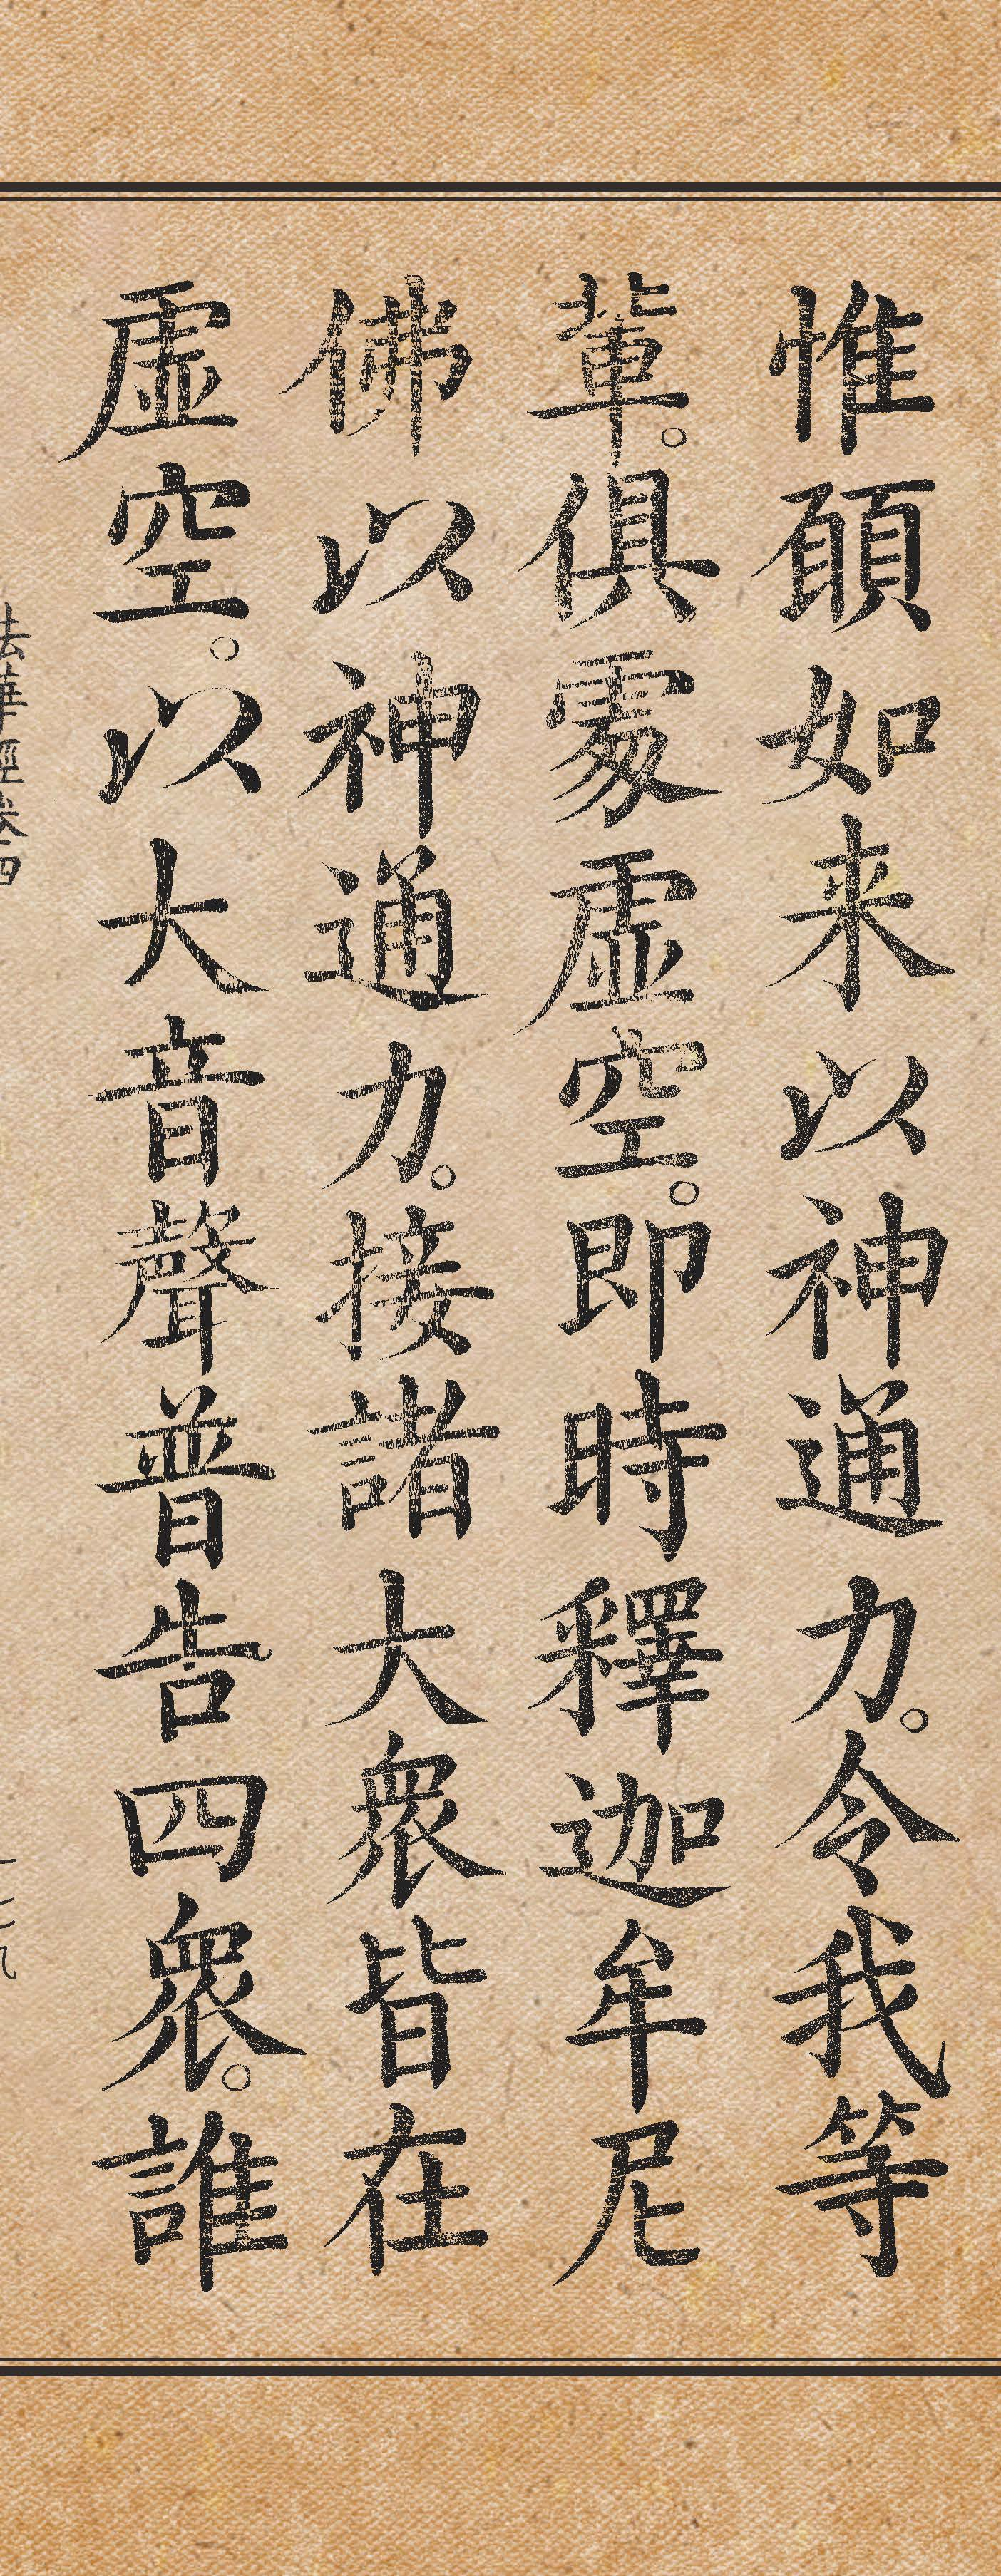 惟願如来以神通力。令我等
輩。俱處虛空。即時釋迦牟尼
佛以神通力。接諸大眾皆在
虛空。以大音聲普告四眾。誰
法華經卷四